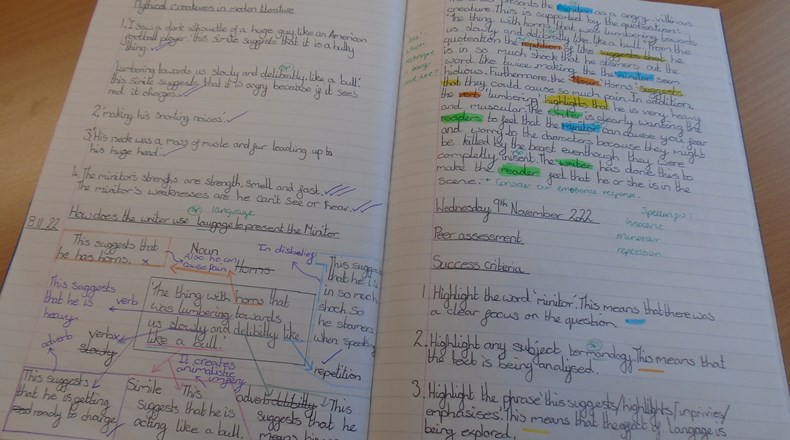 Mythical creatures in modern literature
1. I saw a dark silhouette of a huge guy like an American
football player. this simile suggests that it is a bully
thing.
'lumbering towards us slowly and delibitly like a bull.'
this simile suggests that it is angry because if it sees
red it charges.
2. making his snorting noises.
3. His neck was a mass of musle and fur leading up to
his huge head.
4. The minitor's strenghs are strength, smell and fast.
The minitor's weaknesses are he can't see or hear.
language
8.11.22
How does the writer use laugage to present the Minitor.
This suggests that
he has horns. x
Noun
Also he can
cause pain
Horns
In disturbing
This suggests
that he is
in so much
shock so
he stamers
when speaking
This suggests
that he is
heavy.
verb
'The thing with horns that
was lumbering towards
us slowly and delibitly like
like a bull.'
adverb
verb
slowly
repetition
It creates
animalistic
imagery
This suggests
that he is getting
ready to charge
Simile
This
suggests that he is
acting like a bull.
adverb
This
suggests that he
means
presents the minitor as a angry, villinous
creature. This is supported by the quotation:
'The thing with horns that was lumbering towards
us slowly and delibitly like like a bull.' From the
quotation the repetition of like suggests that he
is in so much shock that he stamers out the
word like twice making the the minitor seem
hidious. Furthermore, the Noun 'Horns' suggests
that they could cause so much pain. In addition,
the verb 'lumbering' highlights that he is very heavy
and muscular. The writer is clearly wanting the
readers to feel that the minitor can cause you fear
and worry to the characters because they might
be killed by the beast eventhough they were
completly inisent. The writer has done this to
make the reader feel that he or she is in the
scene.
* Consider our emotional response.
Wednesday 9th November 2022
Spellings:
innocent
minotaur
repetition
Peer assessment
Success criteria
1. Highlight the word 'minitor'. This means that there was
a clear focus on the question.
2. Highlight any subject termonology. This means that
the text is being analysed.
3. Highlight the phrase 'this suggests/highlights/
emphasises'. This means that the effect of langage is
being explored.